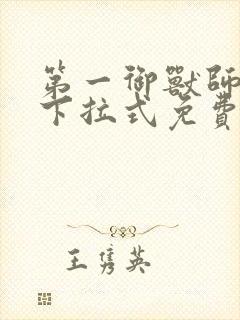 第一御獸師
下拉式免費
王雋英